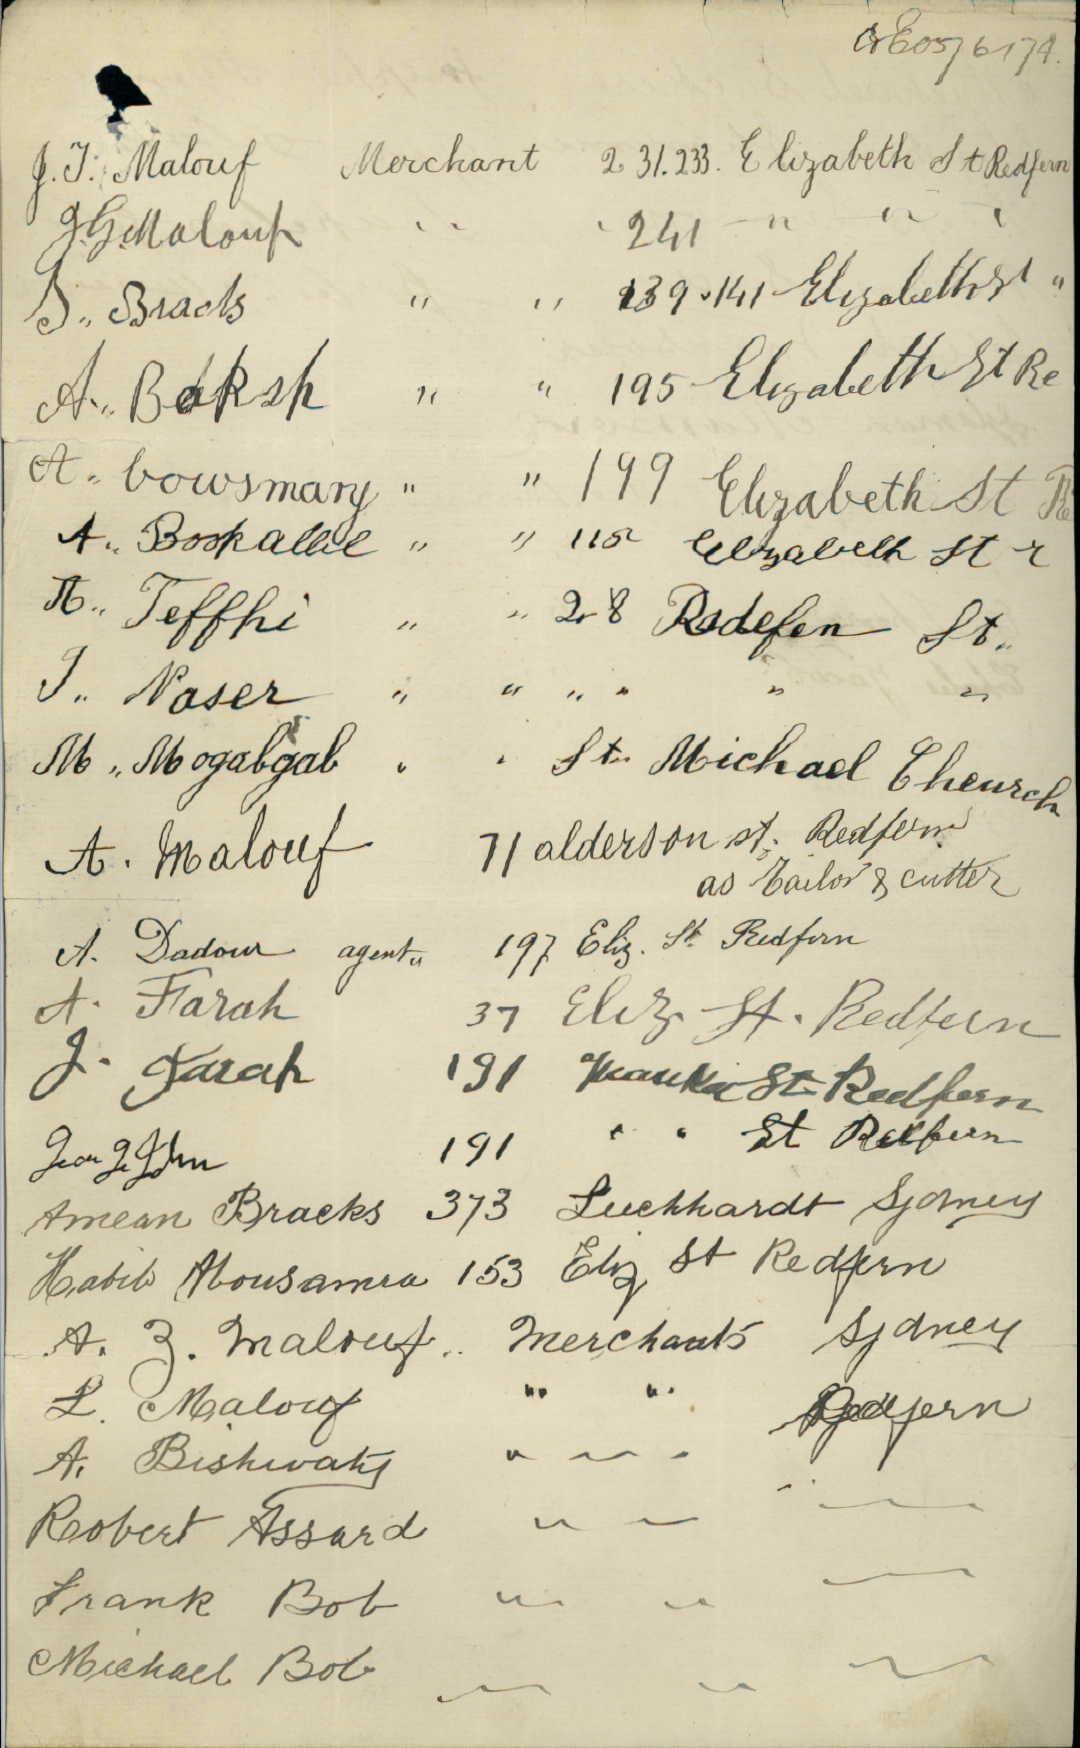 J. T. Malouf Merchant 231.233. Elizabeth St Redfern
J. G. Malouf " " 241 " " "
S.. Bracks " " 139.141 Elizabeth St "
A.. Baksh " " 195 Elizabeth St Re
A.. Cowsmany " " 199 Elizabeth St Re
A.. Bookallil " " 115 Elizabeth St r
A.. Teffhi " " 28 Redefen St..
J.. Naser " " " " " "
M.. Mogabgab " " St. Michael Cheurch
A. Malouf 71 alderson st. Redfern
as Tailor & cutter
A. Dadour agent.. 197 Eliz. St Redfern
A. Farah 37 Eliz. St. Redfern
J. Farah 191 St. Redfern
191 " " St Redfern
Amean Bracks 373 Luchhardt Sydney
Habib Abousamra 153 Eliz St Redfern
A. Z. Malouf.. Merchants Sydney
L. Malouf " " Redfern
A. Bishwaty " "
Robert Assard " " "
Frank Bob " " "
Michael Bob " " "